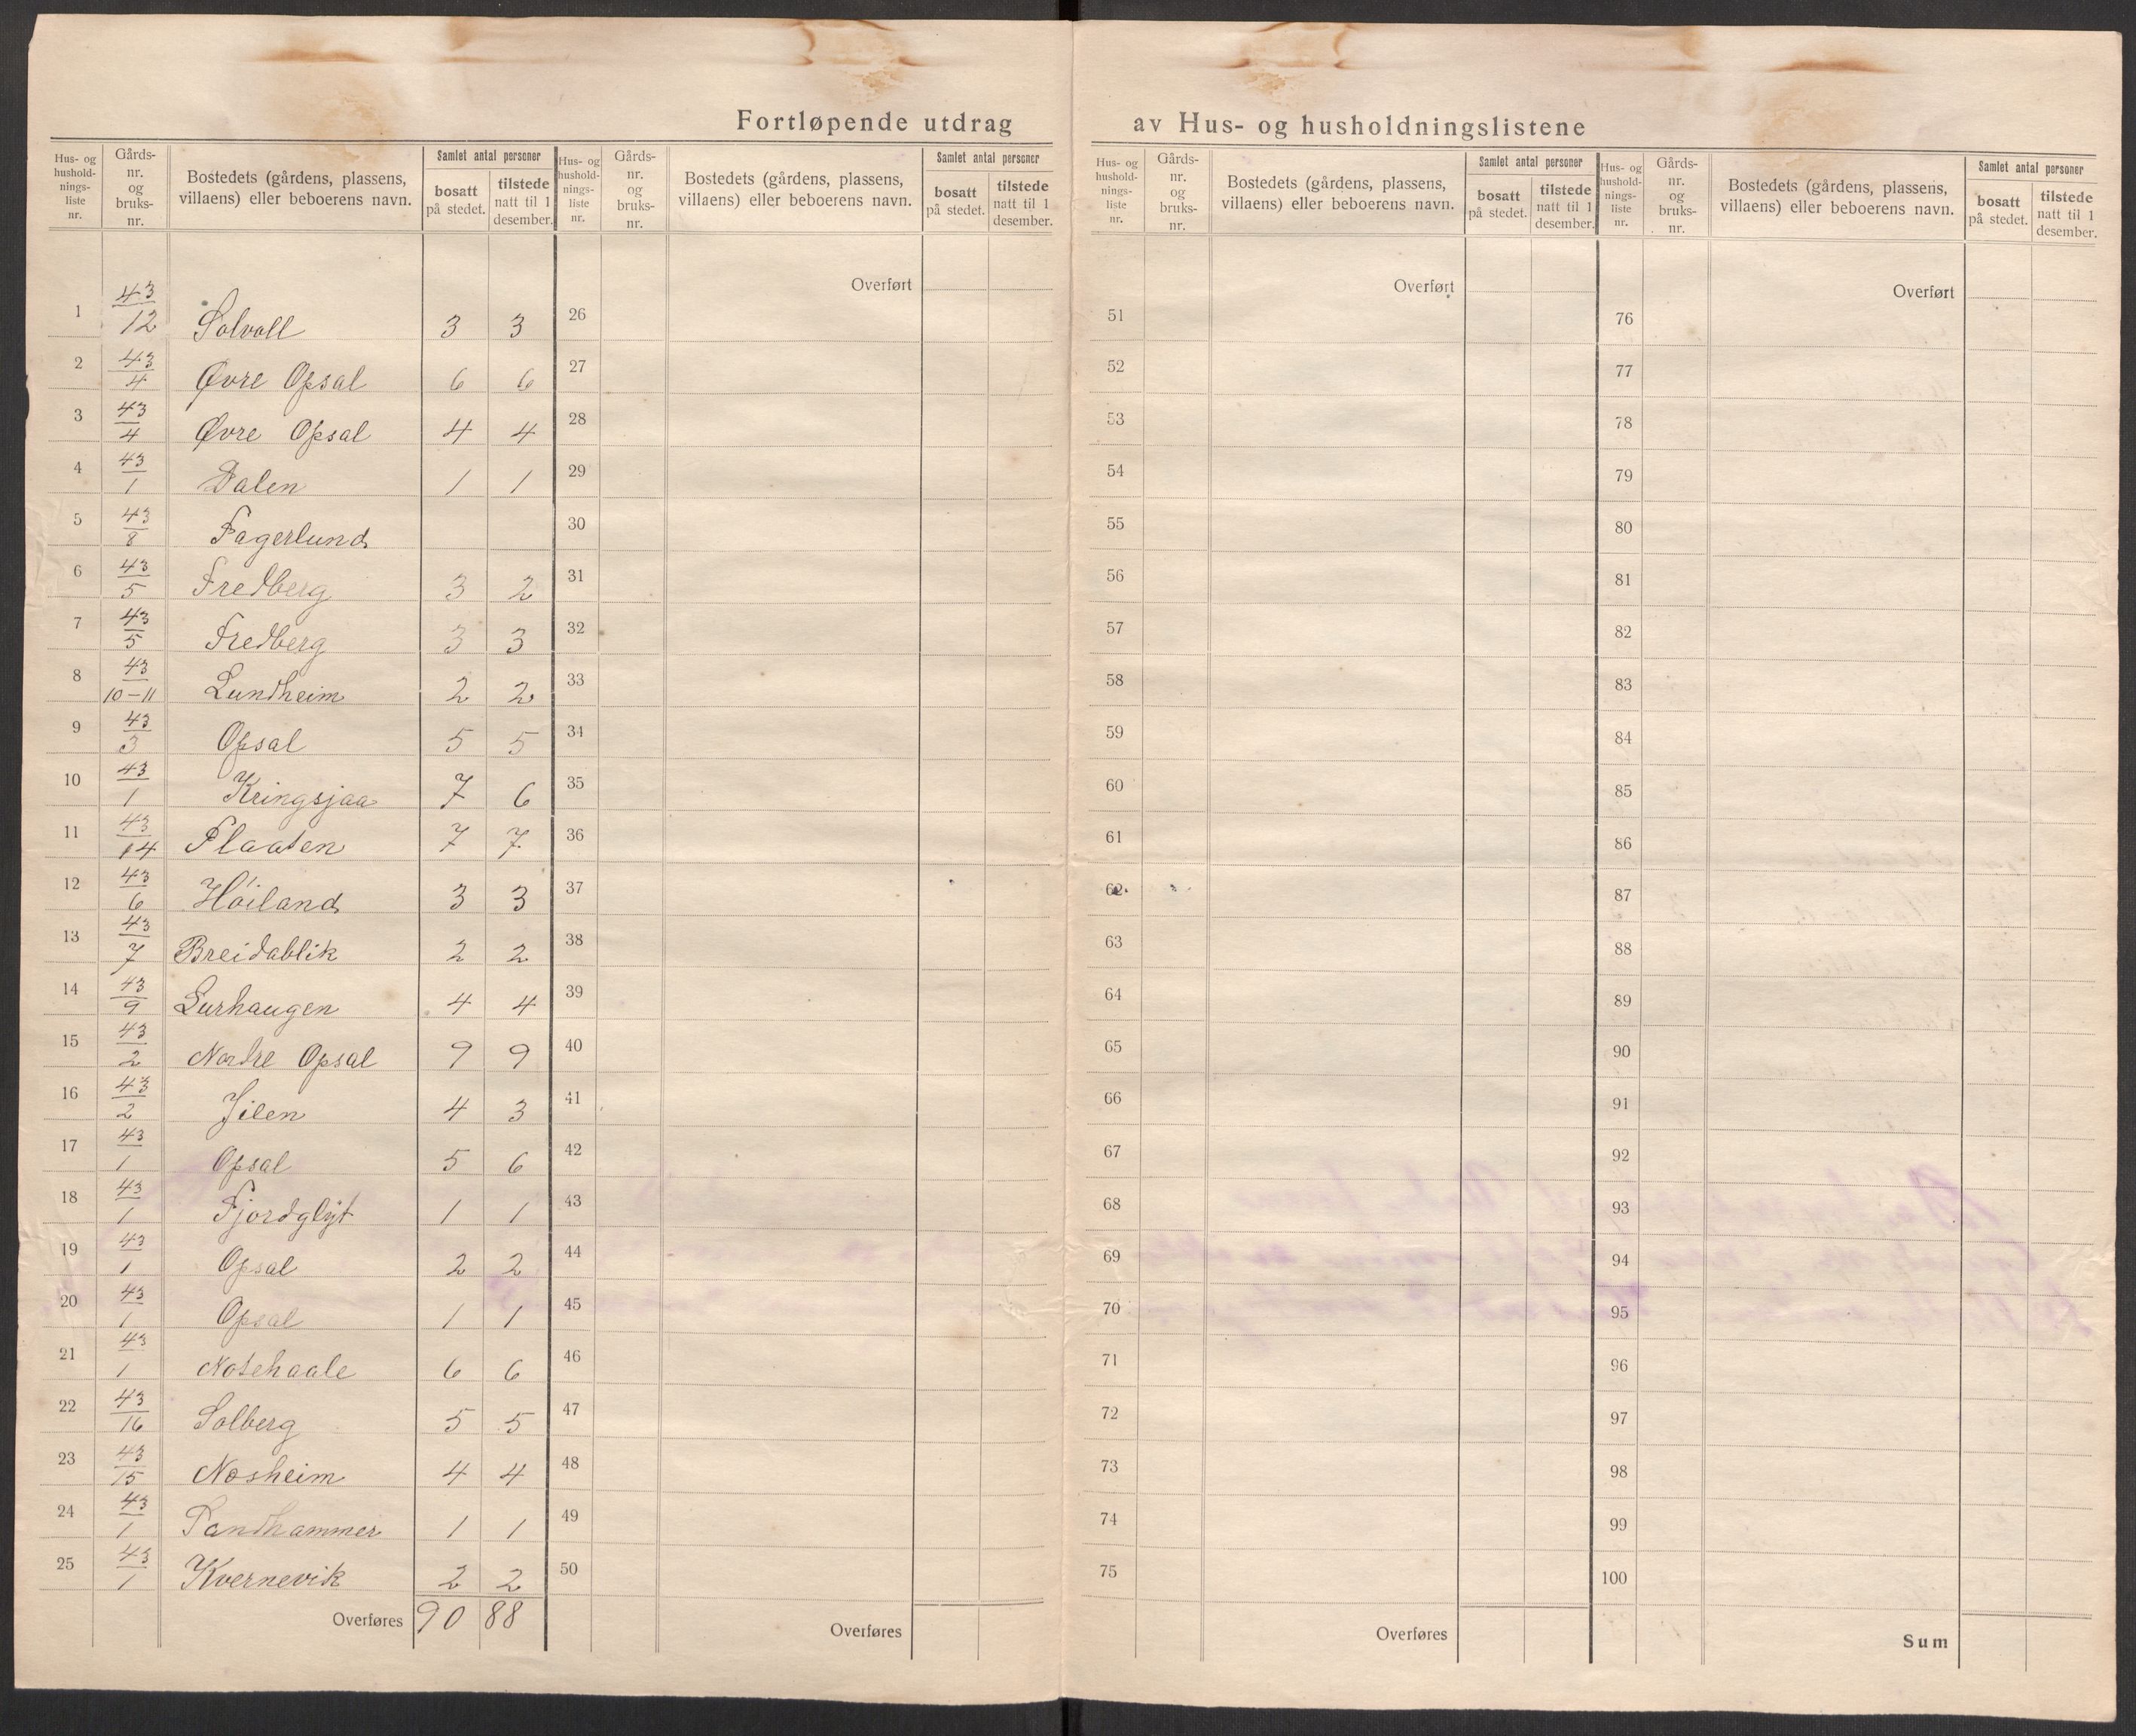 Fortløpende utdrag av Hus- og husholdningslistene
Hus- og hushold-nings-liste nr. | Gårds-nr. og bruks-nr. | Bostedets (gårdens, plassens, villaens) eller beboerens navn. | Samlet antal personer | bosatt på stedet. | tilstede natt til 1 desember.
Hus- og hushold-nings-liste nr. | Gårds-nr. og bruks-nr. | Bostedets (gårdens, plassens, villaens) eller beboerens navn. | Samlet antal personer | bosatt på stedet. | tilstede natt til 1 desember.
Hus- og hushold-nings-liste nr. | Gårds-nr. og bruks-nr. | Bostedets (gårdens, plassens, villaens) eller beboerens navn. | Samlet antal personer | bosatt på stedet. | tilstede natt til 1 desember.
Hus- og hushold-nings-liste nr. | Gårds-nr. og bruks-nr. | Bostedets (gårdens, plassens, villaens) eller beboerens navn. | Samlet antal personer | bosatt på stedet. | tilstede natt til 1 desember.
1 43/12 Solvoll 3 3
2 43/4 Øvre Opsal 6 6
3 43/4 Øvre Opsal 4 4
4 43/1 Dalen 1 1
5 43/8 Fagerlund
6 43/5 Fredberg 3 2
7 43/5 Fredberg 3 3
8 43/10-11 Lundheim 2 2
9 43/3 Opsal 5 5
10 43/1 Kringsjaa 7 6
11 43/14 Plaaten 7 7
12 43/6 Høiland 3 3
13 43/7 Breidablik 2 2
14 43/9 Lurhaugen 4 4
15 43/2 Nordre Opsal 9 9
16 43/2 Jilen 4 3
17 43/1 Opsal 5 6
18 43/1 Fjordgløt 1 1
19 43/1 Opsal 2 2
20 43/1 Opsal 1 1
21 43/1 Notehaale 6 6
22 43/16 Solberg 5 5
23 43/15 Nosheim 4 4
24 43/1 Sandhammer 1 1
25 43/1 Kvernevik 2 2
Overføres 90 88
Overført
26
27
28
29
30
31
32
33
34
35
36
37
38
39
40
41
42
43
44
45
46
47
48
49
50
Overføres
Overført
51
52
53
54
55
56
57
58
59
60
61
62
63
64
65
66
67
68
69
70
71
72
73
74
75
Overføres
Overført
76
77
78
79
80
81
82
83
84
85
86
87
88
89
90
91
92
93
94
95
96
97
98
99
100
Sum